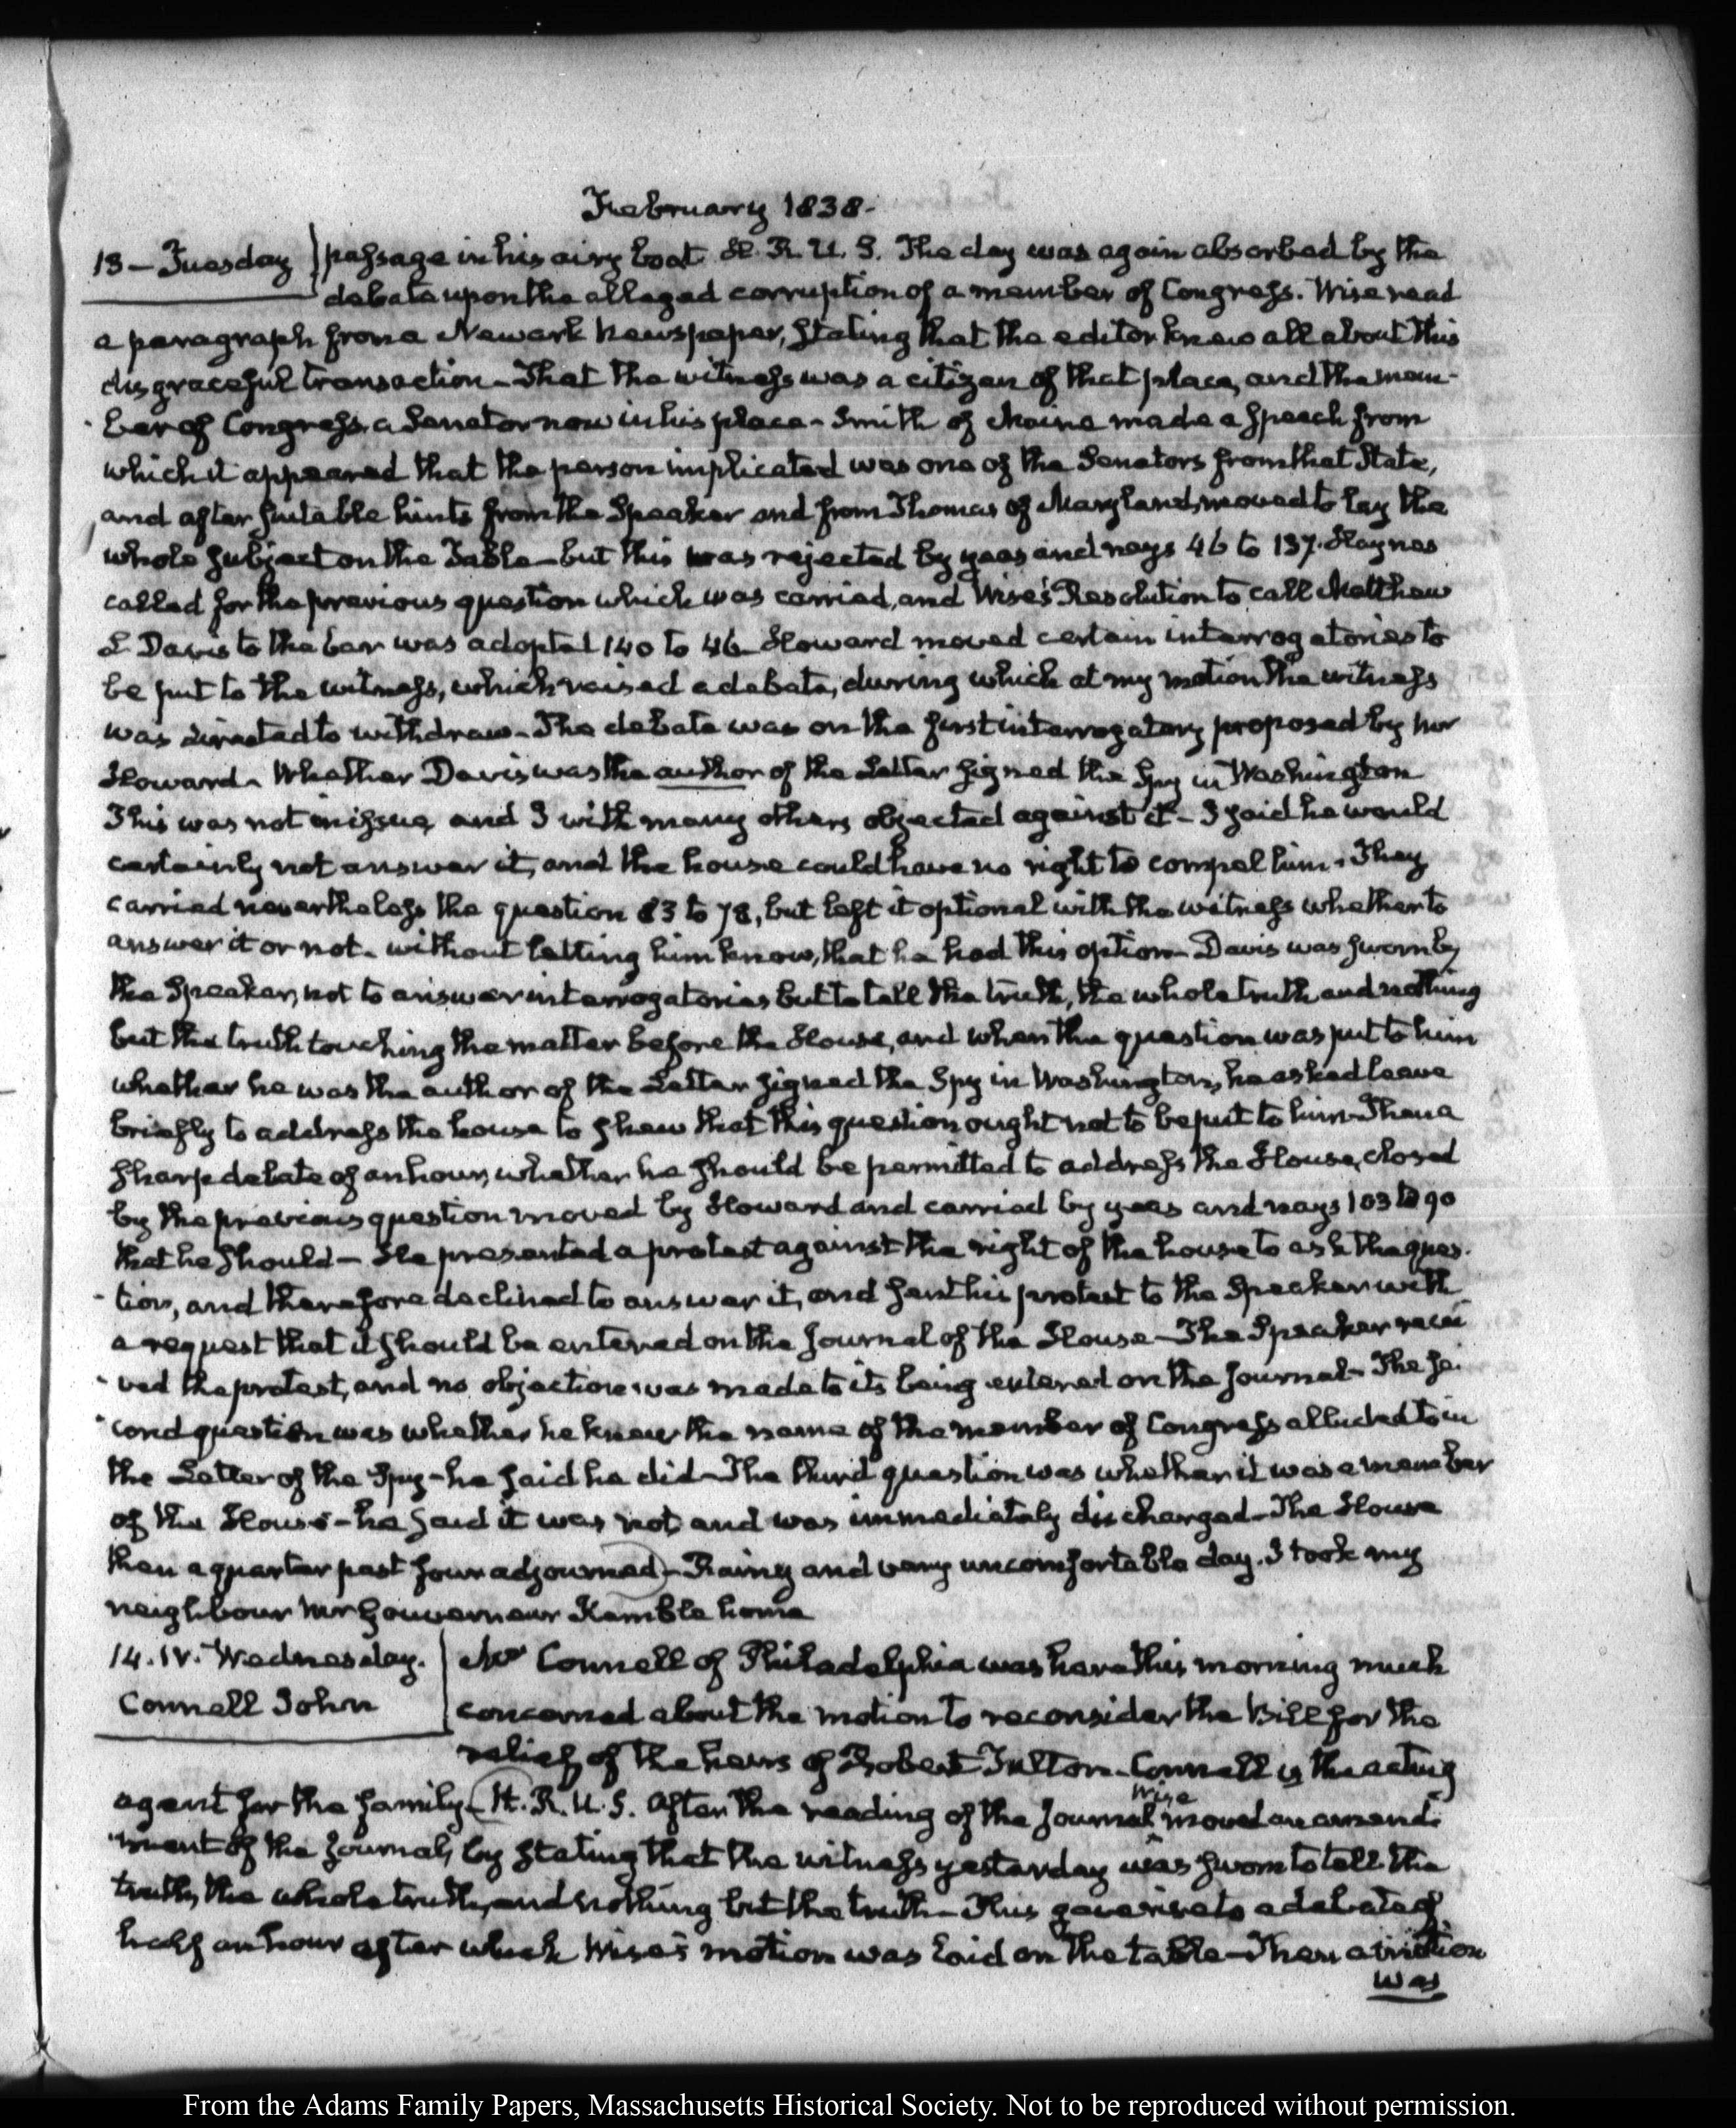 February 1838.
13 — Tuesday passage in his airy boat H. R. U. S. The day was again absorbed by the
debate upon the alleged corruption of a member of Congress. Wise read
a paragraph from a Newark Newspaper, stating that the editor knew all about this
disgraceful transaction — That the witness was a citizen of that place, and the mem-
ber of Congress, a Senator now in his place — Smith of Maine made a Speech from
which it appeared that the person implicated was one of the Senators from that State,
and after suitable hints from the Speaker and from Thomas of Maryland, moved to lay the
whole subject on the Table — but this was rejected by yeas and nays 46 to 137. Haynes
called for the previous question which was carried, and Wise's Resolution to call Matthew
L Davis to the bar was adopted 140 to 46. Howard moved certain interrogatories to
be put to the witness, which raised a debate, during which at my motion the witness
was directed to withdraw — The debate was on the first interrogatory proposed by Mr
Howard. Whether Davis was the author of the Letter signed the Spy in Washington
This was not in issue, and I with many others objected against it — I said he would
certainly not answer it, and the house could have no right to compel him. They
carried nevertheless the question 83 to 78, but left it optional with the witness whether to
answer it or not. without letting him know, that he had this option — Davis was sworn by
the Speaker, not to answer interrogatories but to tell the truth, the whole truth and nothing
but the truth touching the matter before the House, and when the question was put to him
whether he was the author of the Letter signed the Spy in Washington, he asked leave
briefly to address the house to shew that this question ought not to be put to him — Then a
sharp debate of an hour, whether he should be permitted to address the House, closed
by the previous question moved by Howard and carried by yeas and nays 103 to 90
that he should — He presented a protest against the right of the house to ask the ques-
tion, and therefore declined to answer it, and sent his protest to the Speaker with
a request that it should be entered on the Journal of the House — The Speaker recei
ved the protest, and no objection was made to its being entered on the Journal — The se-
cond question was whether he knew the name of the member of Congress alluded to in
the Letter of the Spy — he said he did — The third question was whether it was a member
of the House — he said it was not and was immediately discharged — The House
then a quarter past four adjourned — Rainy and very uncomfortable day. I took my
neighbour Mr Gouverneur Kemble home
14. IV. Wednesday. Mr Connell of Philadelphia was here this morning much
Connell John concerned about the motion to reconsider the Bill for the
relief of the heirs of Robert Fulton. Connell is the acting
agent for the family — H. R. U. S. After the reading of the Journal Wise moved an amend-
ment of the Journal, by stating that the witness yesterday was sworn to tell the
truth, the whole truth, and nothing but the truth — This gave rise to a debate of
half an hour after which Wise's motion was laid on the table — Then a motion
was
From the Adams Family Papers, Massachusetts Historical Society. Not to be reproduced without permission.